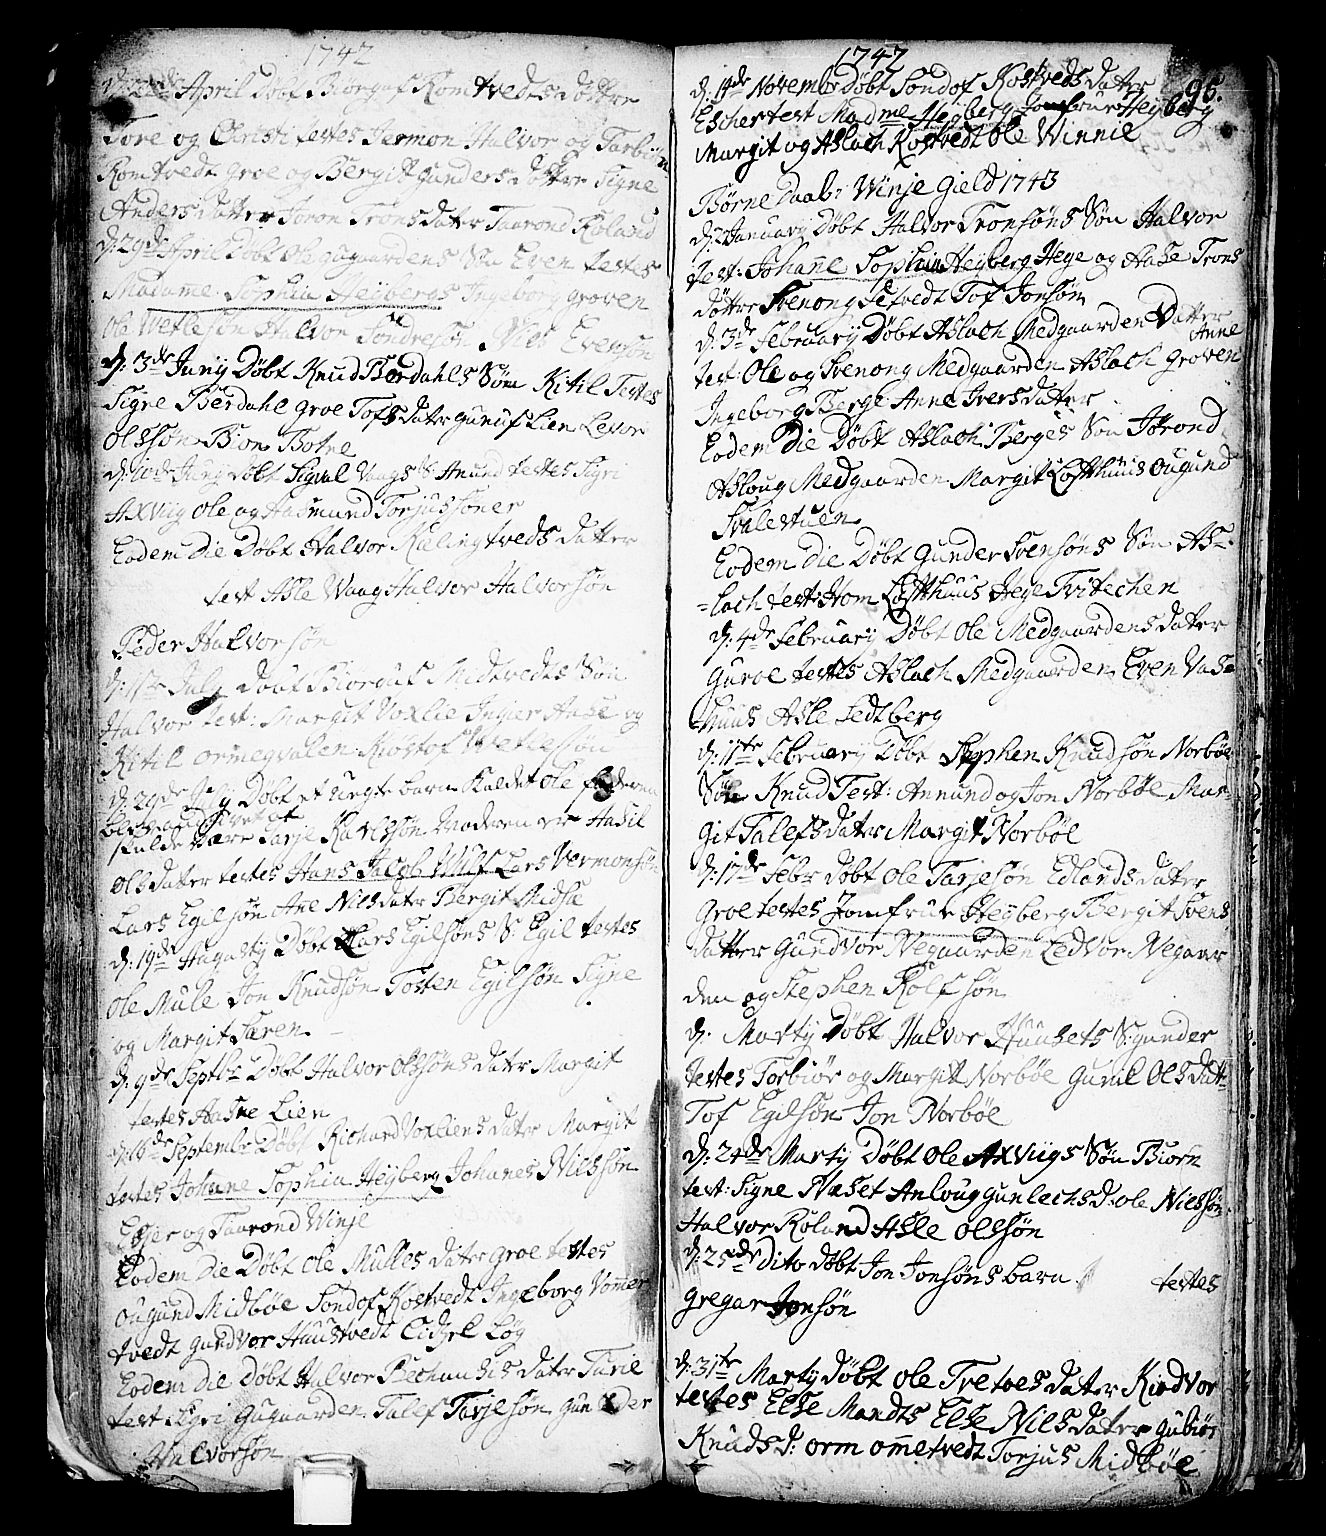 1742
April Døbt Biørguf Romtvedts døttre
Tore og Christi testes Jermon Halvor og Torbiør
Romtvedt groe og Bergit gunders døttre Signe
Anders datter Joron Trons dater Taarond Roland
d: 29de April Døbt Ole gugaardens Søn Even testes
Madame Sophia Heÿbergs Ingeborg groven
Ole Wetlesøn Halvor Sondresøn Nils Evensøn
d: 3de Junÿ Døbt Knud Berdahls Søn Kitil Testes
Signe Berdahl groe Tofsdater gunuf Lien Levor
Olssøn Bion Botne
d: 10de Junÿ Døbt Sigval Vaags S: Anund testes Sigri
Axvÿg Ole og Aasmund Torjussøner
Eodem Die Døbt Halvor Kielingtveds datter
test Asle Waag Halvor Halvorsøn
Peder Halvorsøn
Julÿ Biørguf Midtvedts Søn
Halvor test: Margit Voxlie Ingier Aase og
Kitil ormegvalen Kiøstof Wetlesøn
d: 29de Julÿ Døbt et uegte barn Kaldet Ole faderen
skulde være Tarje Karlssøn Moderen er
Olsdatter testes Hans Jacob Wulf Lars Vermonsøn
Lars Egilsøn Ane Nilsdater Bergit Midsü
d: 19de Augusty Døbt Lars Egilsøns S: Egil testes
Ole Mule Jon Knudsøn Tosten Egilsøn Signe
og Margit Særen
d: 9de Septbr Døbt Halvor Olssøns datr Margit
testes Aasne Lien
d: 16de Septembr Døbt Richard Voxliens datr Margit
testes Johane Sophia Heÿberg Johanes Nilssøn
Egier og Taarond Winje
Eodem Die Døbt Ole Mulles dater groe testes
ougund Midbøe Sondof Kostvedt Ingeborg Vomer
tvedt gundvor Haustvedt Eidzel Løg
Eodem Die Døbt Halvor Bechhuus dater Turie
test Sigri Gugaarden Talef Tarjesøn gunder
Halvorsøn
1742
95.
d: 11de Novembr Døbt Sondof Kostveds dater
Eschertest Madme Heÿberg Jomfrue Heÿberg
Margit og Aslach Kostvedt Ole Winnie
Børne Daab: Winje Gield 1743
d: 2 January Døbt Halvor Tronsøns Søn Halvor
test: Johane Sophia Heÿberg Hege og Aase Trons
døttre Svenong Setvedt Tof Jonsøn
d: 3de February Døbt Aslach Medgaarden Datter
Anne
test: Ole og Svenong Medgaarden Aslach groven
Ingeborg Berge Anne Iversdatter
Eodem Die Døbt Aslach Berges Søn Jørond
Aslaug Medgaarden Margit Loftshuus Ougund
Svalestuen
Eodem Die Døbt Gunder Svensøns Søn As=
=lach test: Hom Loftshuus Hege Tvitechen
d: 4de February Døbt Ole Medgaardens dater
Guroe testes Aslach Medgaarden Even Vas=
=huus Asle Sedtberg
d: 11te February Døbt Stephen Knudsøn Norbøe
Søn Knud Test: Annund og Jon Norbøe Mar=
git Talefsdater Margit Norbøe
d: 17de Febr Døbt Ole Tarjesøn Edlands dater
Groe testes Jomfrue Heÿberg Bergit Svens
datter Gundvor Negaarden Ledvor Negaar
den og Stephen Rolfsøn
d: Marty Døbt Halvor Huusets S: gunder
testes Torbiør og Margit Norbøe Gunil Ols datt:
Tof Egilsøn Jon Norbøe
d: 24de Marty Døbt Ole Axvÿgs Søn Biørn
test: Signe Næset Anloug gunlechs d: ole Nilssøn
Halvor Roland Asle Olssøn
d: 25de dito døbt Jon Jonsøns barn testes
gregar Jonsøn
d: 31te Marty døbt ole Tretoes dater Kindvor
testes Else Mandts Else Nilsdater gubiør
Knuds d: orm ometvedt Torjus Midbøe